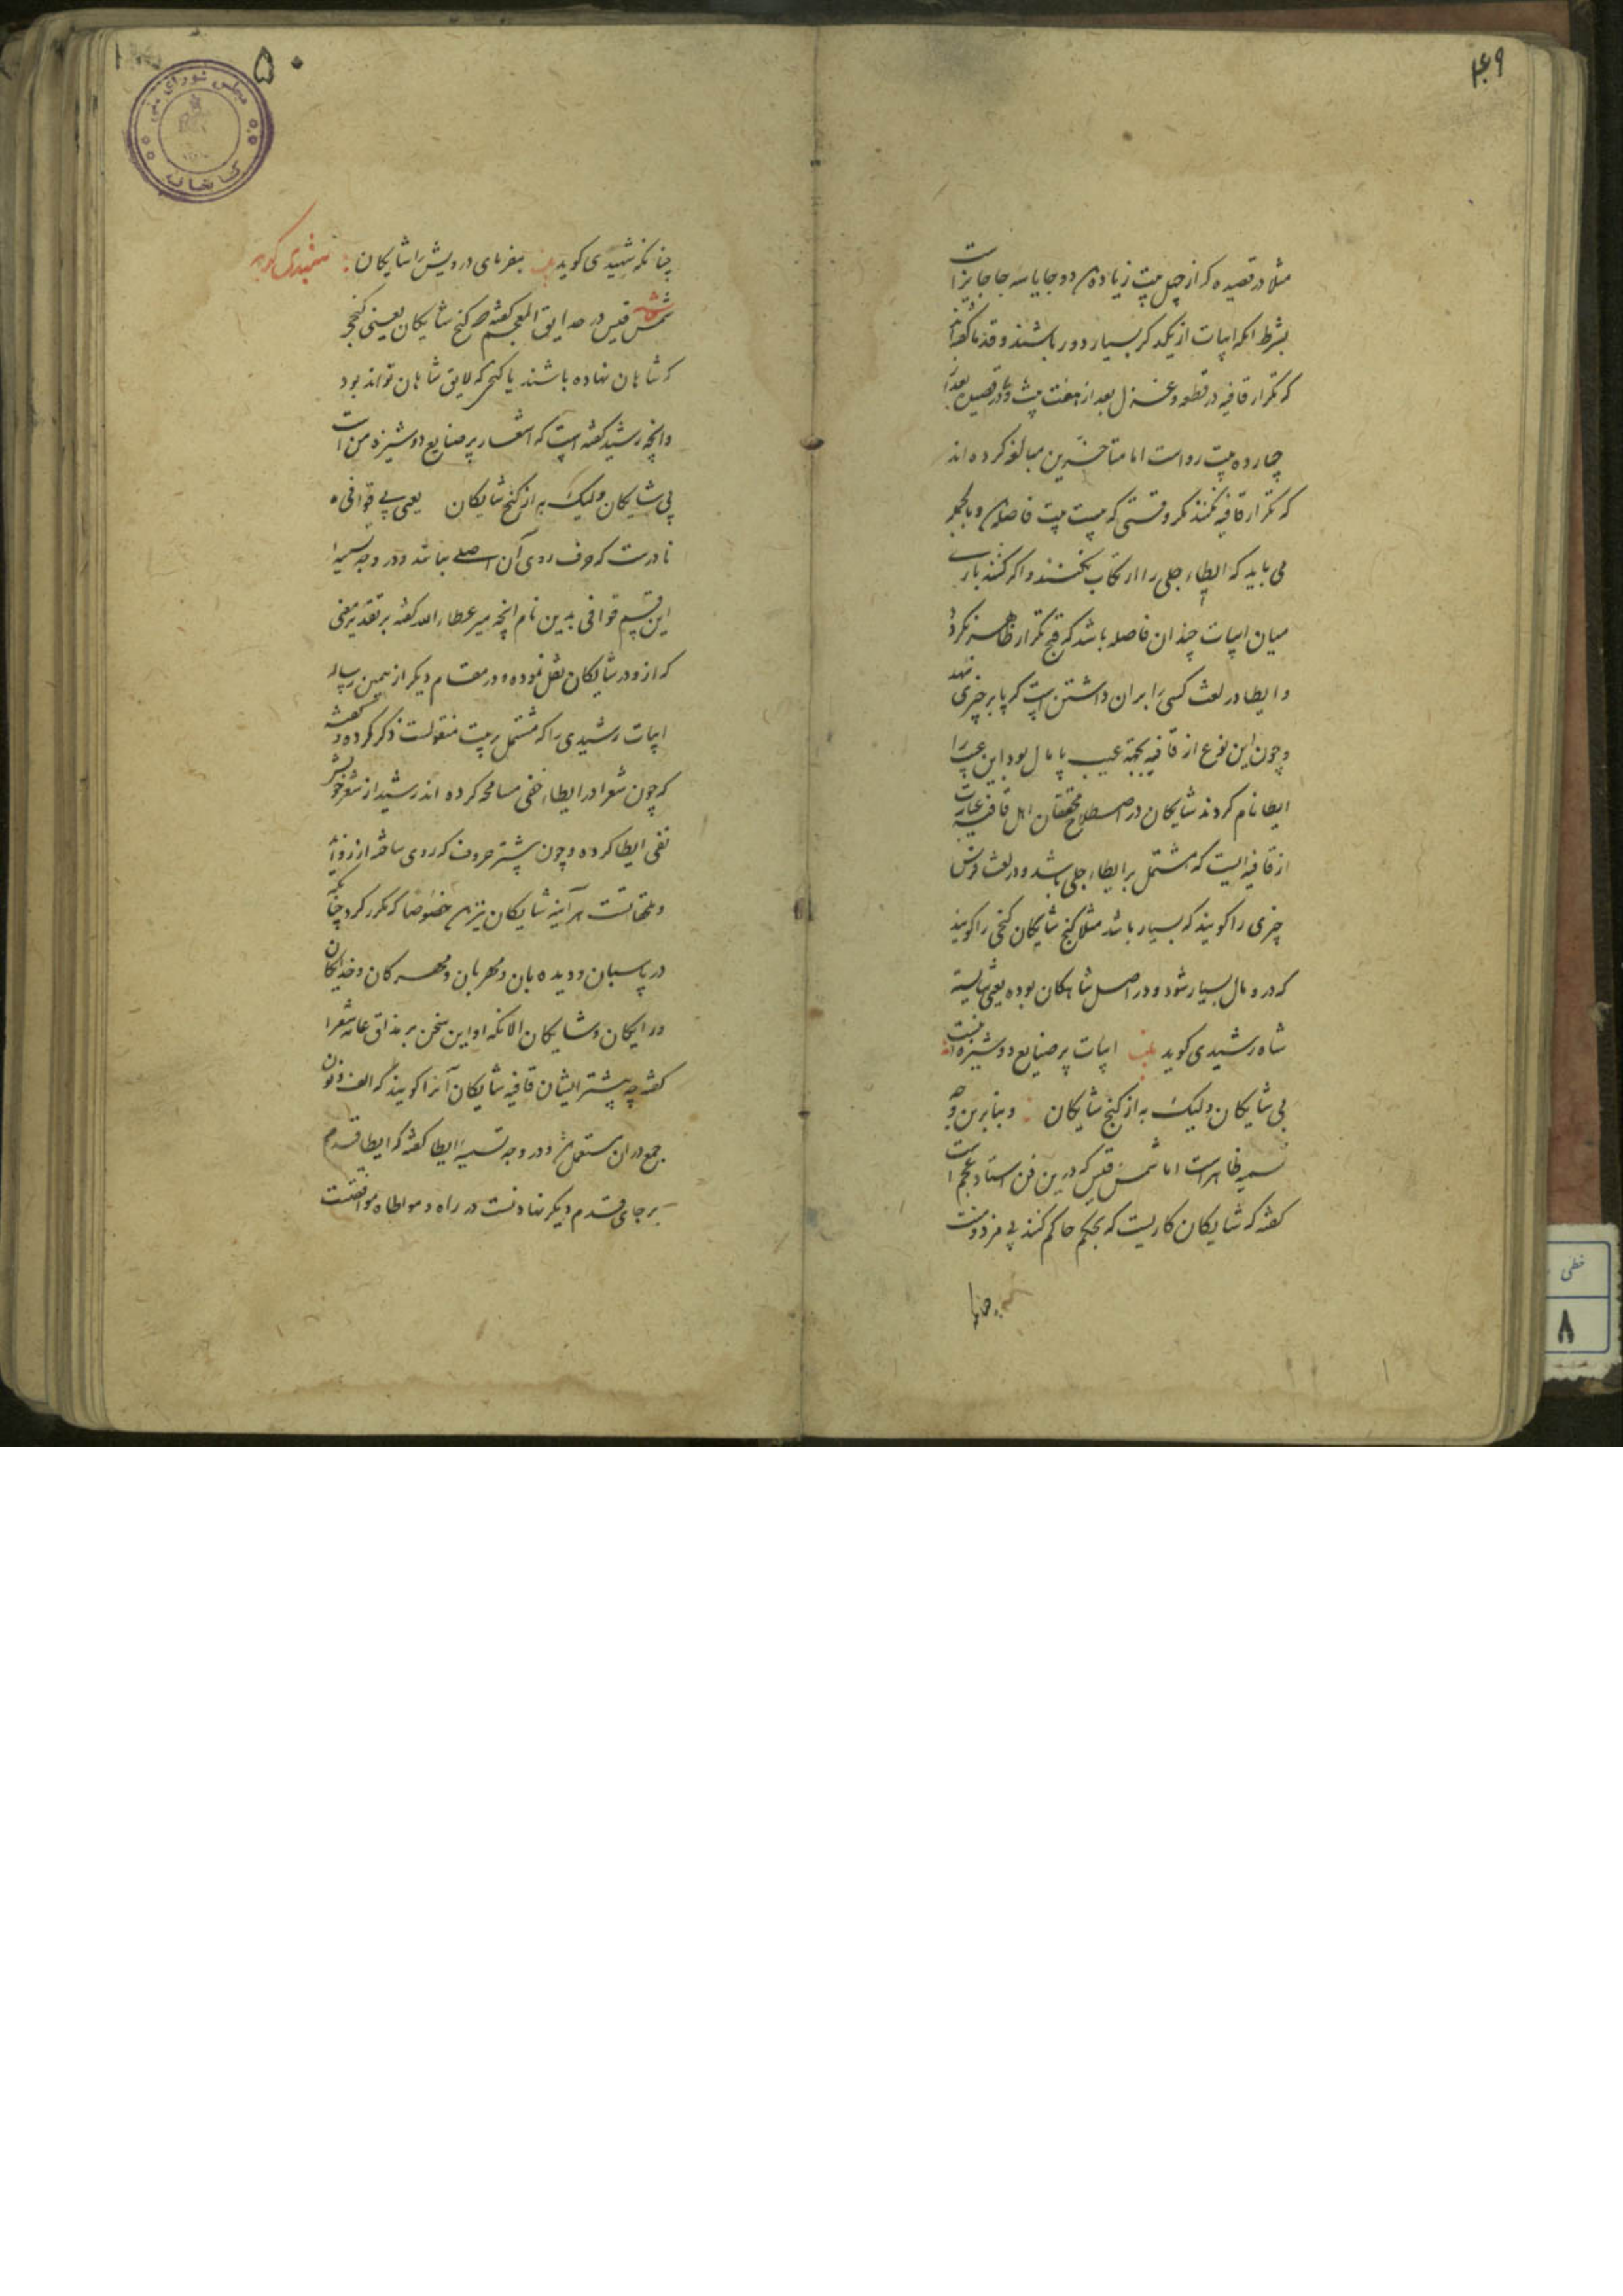 ۴۹
مثلا در قصیده که از چهل بیت زیاده بود دو جا یا سه جا جایز است
بشرط انکه ابیات از یکدیکر بسیار دور باشند و قدما گفته‌اند
که تکرار قافیه در قطعه و غزل بعد از هفت بیت و در قصیده بعد از
چهارده بیت رواست اما متاخرین مبالغه کرده اند
که تکرار قافیه نکنند مگر وقتی که بیست بیت فاصله بود و بالجمله
می باید که ایطاء جلی را ارتکاب نکنند و اکر کنند باری
میان ابیات چندان فاصله باشد که قبح تکرار ظاهر نکردد
و ایطا در لغت کسی را بران داشتن است که پا بر چیزی نهد
و چون این نوع از قافیه بجهة عیب پا مال بود این عیب را
ایطا نام کردند شایکان در اصطلاح محققان اهل قافیه عبارت
از قافیه ایست که مشتمل بر ایطاء جلی باشد و در لغت فرس
چیزی را کویند که بسیار باشد مثلا کنج شایکان کنجی را کویند
که در و مال بسیار شود و در اصل شاهکان بوده یعنی شایسته
شاه رشیدی کوید بیت ابیات پر صنایع دوشیزه منست
بی شایکان ولیک به از کنج شایکان و بنابرین وجه
تسمیه ظاهر است اما شمس قیس که درین فن استاد عجم است
کفته که شایکان کاریست که بحکم حاکم کنند بی مزد و منت
چنانکه
۵۰
چنانکه شهیدی کوید بیت بفرمای درویش را شایکان شهیدی کوید
شمس قیس در حدایق المعجم کفته که کنج شایکان یعنی کنجی
که شاهان نهاده باشند یا کنجی که لایق شاهان تواند بود
و انچه رشید کفته است که اشعار پر صنایع دوشیزه من است
بی شایکان ولیک به از کنج شایکان یعنی بی قوافی
نادرست که حرف روی آن اصلی نباشد و در وجه تسمیه
این قسم قوافی بدین نام انچه میر عطاء الله کفته بر تقدیر معنی
که ازو در شایکان نقل نموده و در مقام دیکر از همین رساله
ابیات رشیدی را که مشتمل بر بیت منقولست ذکر کرده و کفته
که چون شعرا در ایطاء خفی مسامحه کرده اند رشید از شعر خویش
نفی ایطا کرده و چون بیشتر حروف که روی ساخته از زواید
و ملحقاتست هر آینه شایکان نیز بود خصوصا که مکرر کردد چنانکه
در پاسبان و دیده بان و مهربان و مهرکان و خدایکان
و رایکان و شایکان الا انکه او این سخن بر مذاق عامه شعرا
کفته چه بیشتر ایشان قافیه شایکان آنرا کویند که الف و نون
جمع در ان مستعمل بود و در وجه تسمیه ایطا کفته که ایطا قدم
بر جای قدم دیکر نهادنست در راه و مواطاه موافقتست
مجلس شورای ملی
کتابخانه
خطی
۸